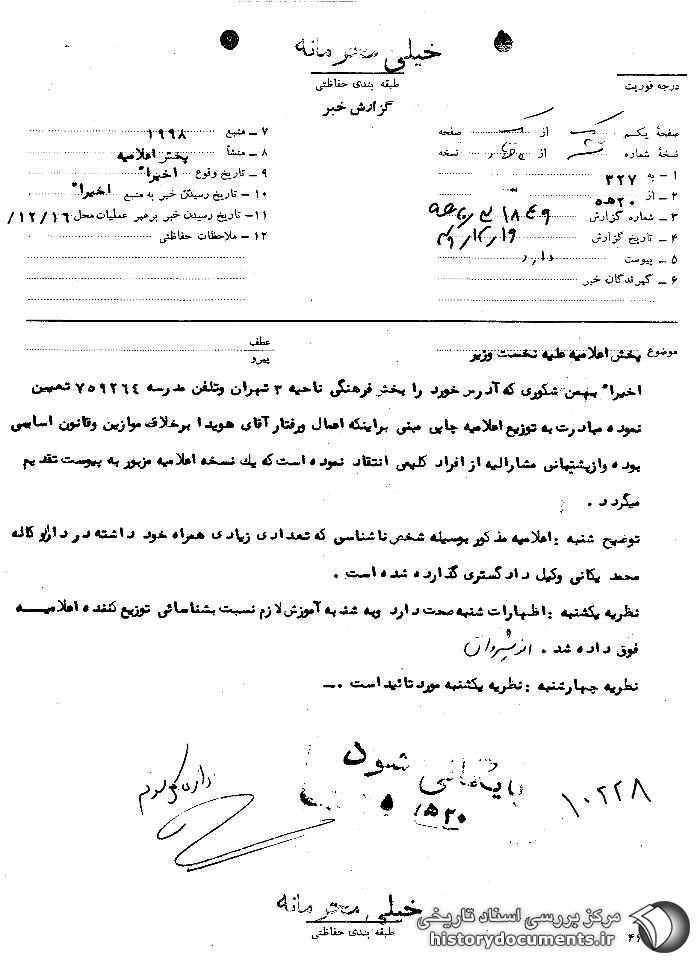 خیلی محرمانه
طبقه بندی حفاظتی
گزارش خبر
درجه فوریت
صفحهٔ یکم یک از یک صفحه
نسخهٔ شماره از نسخه
۱ – به ۳۲۷
۲ – از ۲۰ ﻫ ۵
۳ – شماره گزارش ۱۸۴۹
۴ – تاریخ گزارش
۵ – پیوست دارد
۶ – گیرندگان خبر
۷ – منبع ۱۹۹۸
۸ – منشأ پخش اعلامیه
۹ – تاریخ وقوع اخیرا"
۱۰ – تاریخ رسیدن خبر به منبع اخیرا"
۱۱ – تاریخ رسیدن خبر برهبر عملیات محل ۱۲/۱۶/
۱۲ – ملاحظات حفاظتی
موضوع پخش اعلامیه علیه نخست وزیر
عطف
پیرو
اخیرا" بهمن شکوری که آدرس خود را بخش فرهنگی ناحیه ۳ تهران وتلفن مدرسه ۷۵۹۲۶۴ تعیین
نموده مبادرت به توزیع اعلامیه چاپی مبنی براینکه اعمال ورفتار آقای هویدا برخلاف موازین وقانون اساسی
بوده وازپشتیبانی مشارالیه از افراد کلیمی انتقاد نموده است که یك نسخه اعلامیه مزبور به پیوست تقدیم
میگردد .
توضیح شنبه : اعلامیه مذکور بوسیله شخص ناشناسی که تعدادی زیادی همراه خود داشته در دارالوکاله
محمد یکانی وکیل دادگستری گذارده شده است .
نظریه یکشنبه : اظهارات شنبه صحت دارد وبه شنبه آموزش لازم نسبت بشناسائی توزیع کننده اعلامیــه
فوق داده شد . انوشیروان
نظریه چهارشنبه : نظریه یکشنبه مورد تائید است .
بایگانی شود
۲۰ ﻫ ۵
۱۰۲۲۸
خیلی محرمانه
طبقه بندی حفاظتی
مرکز بررسی اسناد تاریخی
historydocuments.ir
۴۶